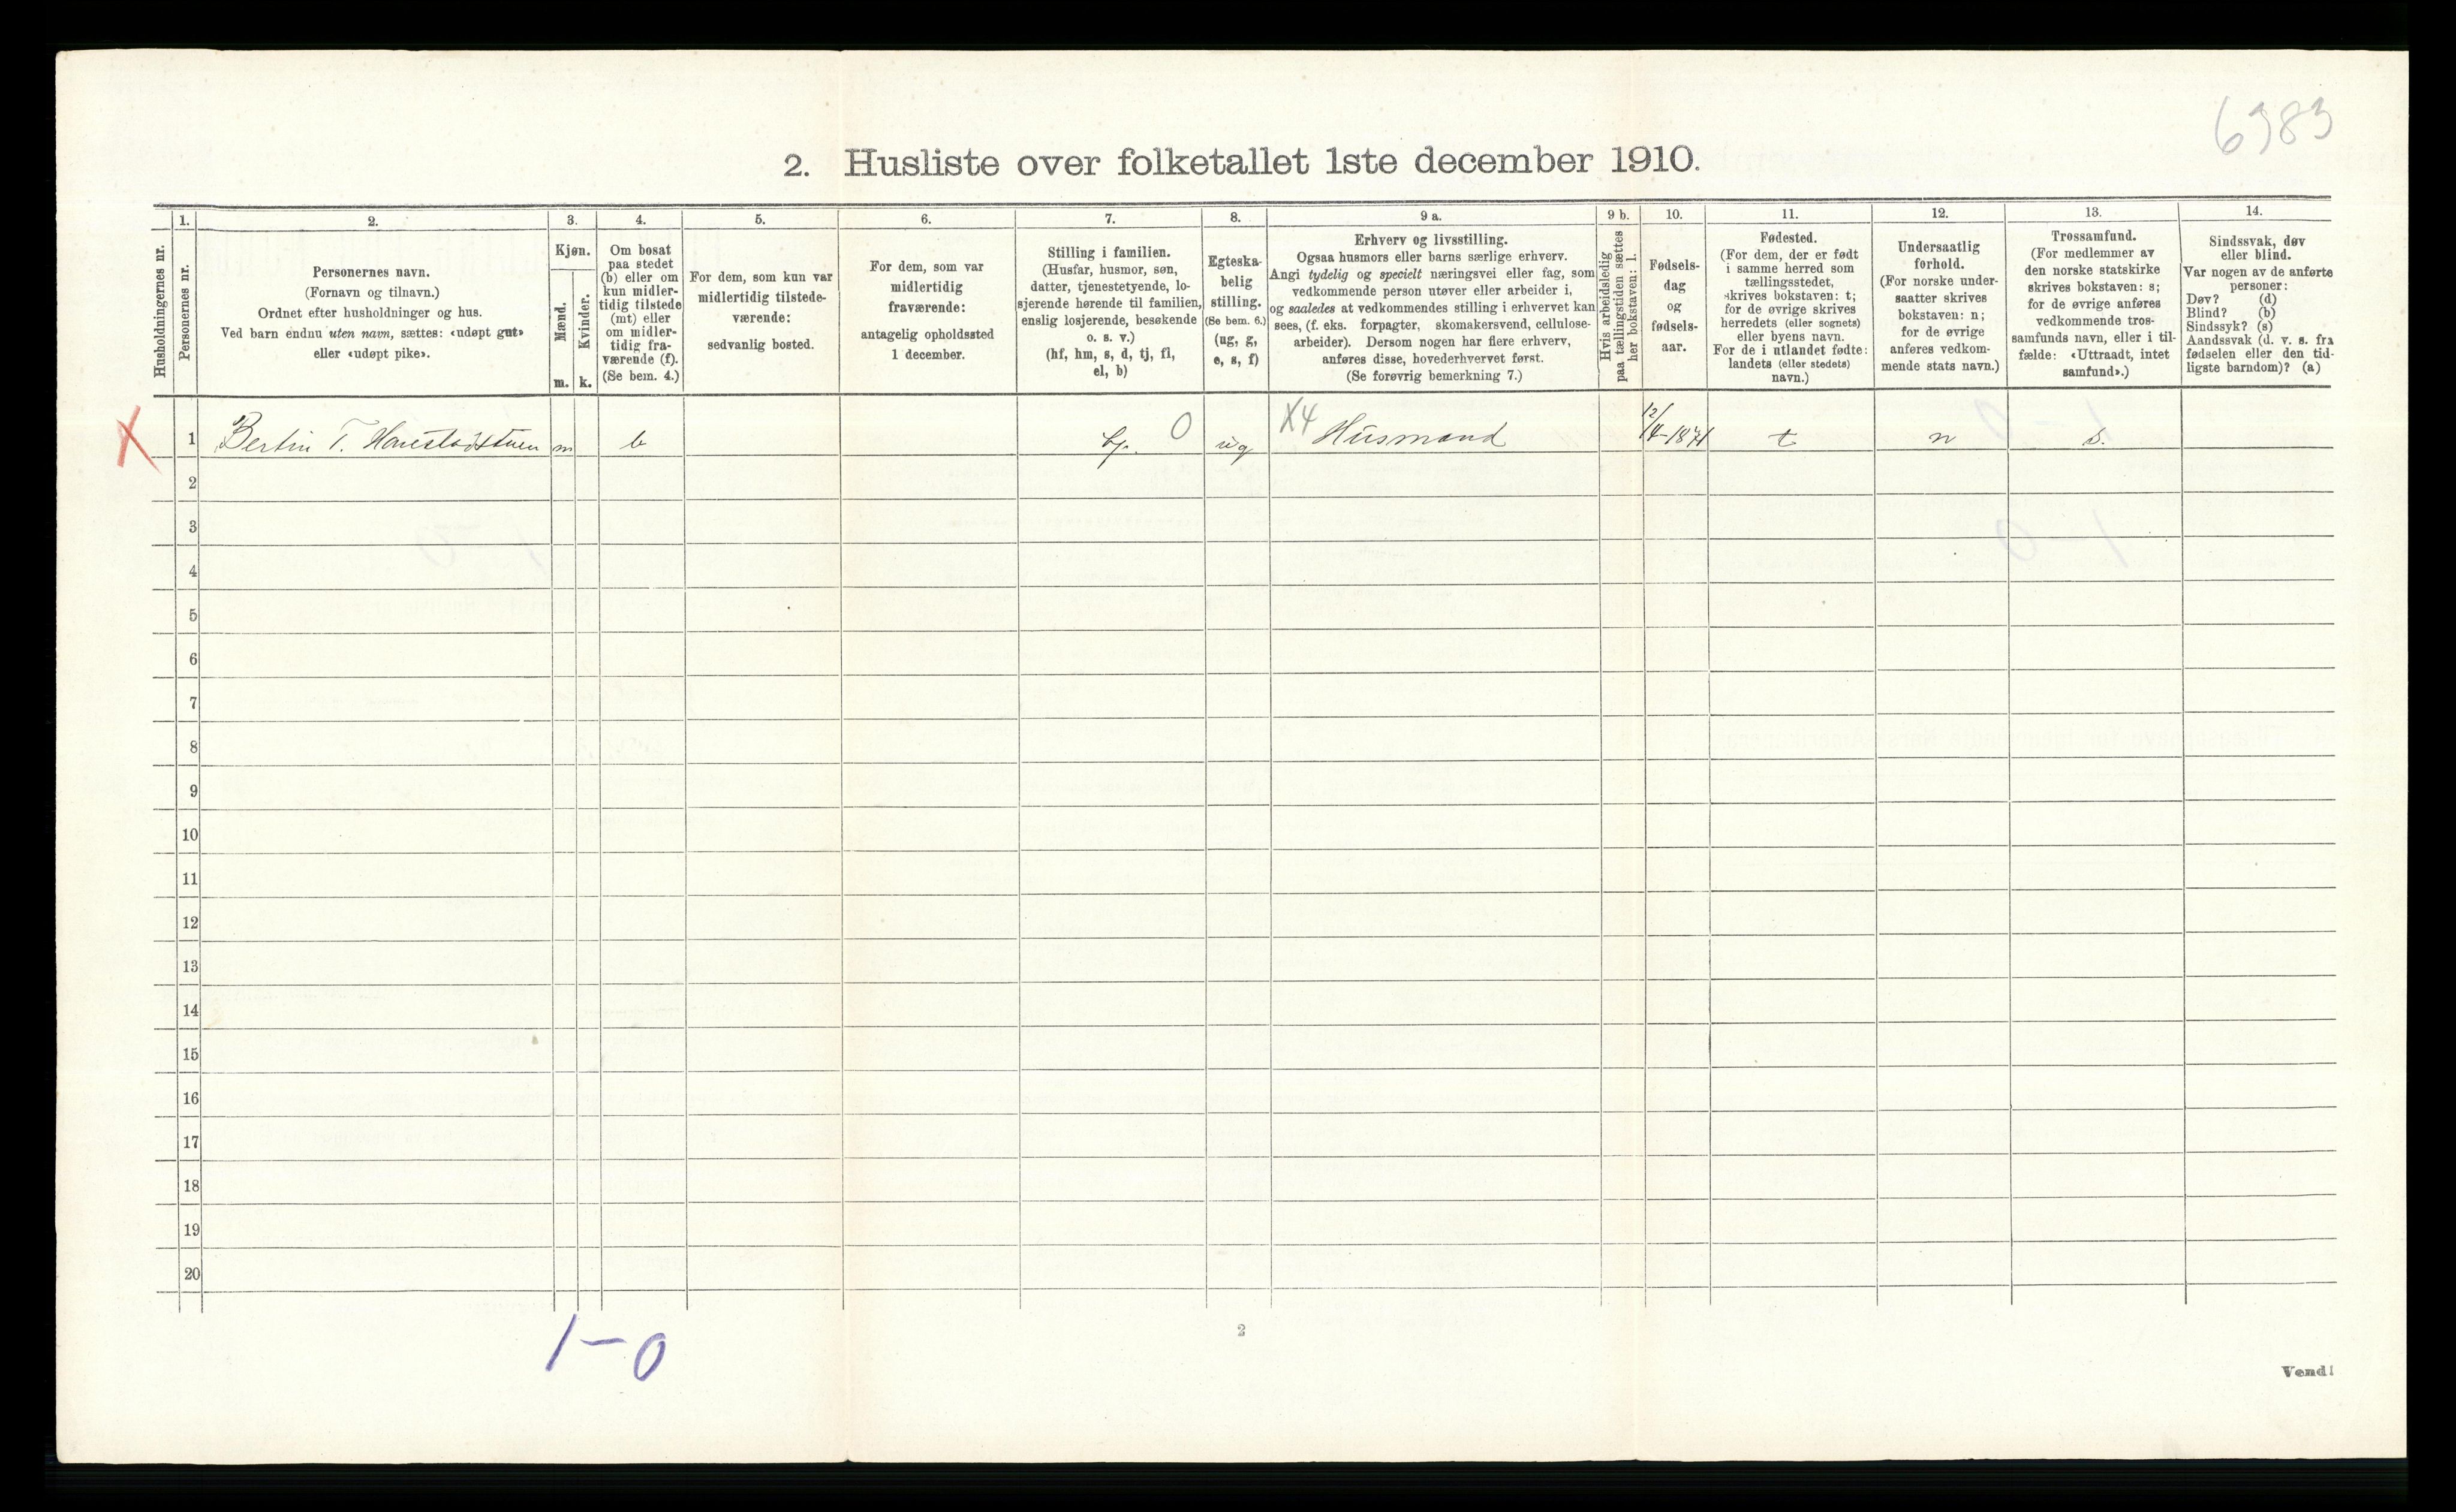 6983
2. Husliste over folketallet 1ste december 1910.
1. 2. 3. 4. 5. 6. 7. 8. 9 a. 9 b. 10. 11. 12. 13. 14.
Husholdningernes nr.
Personernes nr.
Personernes navn.
(Fornavn og tilnavn.)
Ordnet efter husholdninger og hus.
Ved barn endnu uten navn, sættes: «udøpt gut»
eller «udøpt pike».
Kjøn.
Mænd.
Kvinder.
m. k.
Om bosat
paa stedet
(b) eller om
kun midler-
tidig tilstede
(mt) eller
om midler-
tidig fra-
værende (f).
(Se bem. 4.)
For dem, som kun var
midlertidig tilstede-
værende:
sedvanlig bosted.
For dem, som var
midlertidig
fraværende:
antagelig opholdssted
1 december.
Stilling i familien.
(Husfar, husmor, søn,
datter, tjenestetyende, lo-
sjerende hørende til familien,
enslig losjerende, besøkende
o. s. v.)
(hf, hm, s, d, tj, fl,
el, b)
Egteska-
belig
stilling.
(Se bem. 6.)
(ug, g,
e, s, f)
Erhverv og livsstilling.
Ogsaa husmors eller barns særlige erhverv.
Angi tydelig og specielt næringsvei eller fag, som
vedkommende person utøver eller arbeider i,
og saaledes at vedkommendes stilling i erhvervet kan
sees, (f. eks. forpagter, skomakersvend, cellulose-
arbeider). Dersom nogen har flere erhverv,
anføres disse, hovederhvervet først.
(Se forøvrig bemerkning 7.)
Hvis arbeidsledig
paa tællingstiden sættes
her bokstaven: l.
Fødsels-
dag
og
fødsels-
aar.
Fødested.
(For dem, der er født
i samme herred som
tællingsstedet,
skrives bokstaven: t;
for de øvrige skrives
herredets (eller sognets)
eller byens navn.
For de i utlandet fødte:
landets (eller stedets)
navn.)
Undersaatlig
forhold.
(For norske under-
saatter skrives
bokstaven: n;
for de øvrige
anføres vedkom-
mende stats navn.)
Trossamfund.
(For medlemmer av
den norske statskirke
skrives bokstaven: s;
for de øvrige anføres
vedkommende tros-
samfunds navn, eller i til-
fælde: «Uttraadt, intet
samfund».)
Sindssvak, døv
eller blind.
Var nogen av de anførte
personer:
Døv? (d)
Blind? (b)
Sindssyk? (s)
Aandssvak (d. v. s. fra
fødselen eller den tid-
ligste barndom)? (a)
X 1 Bertin T. m b 0 ug X4 Husmand 12/4-1871 t n s.
2
3
4
5
6
7
8
9
10
11
12
13
14
15
16
17
18
19
20
1-0
2
Vend!